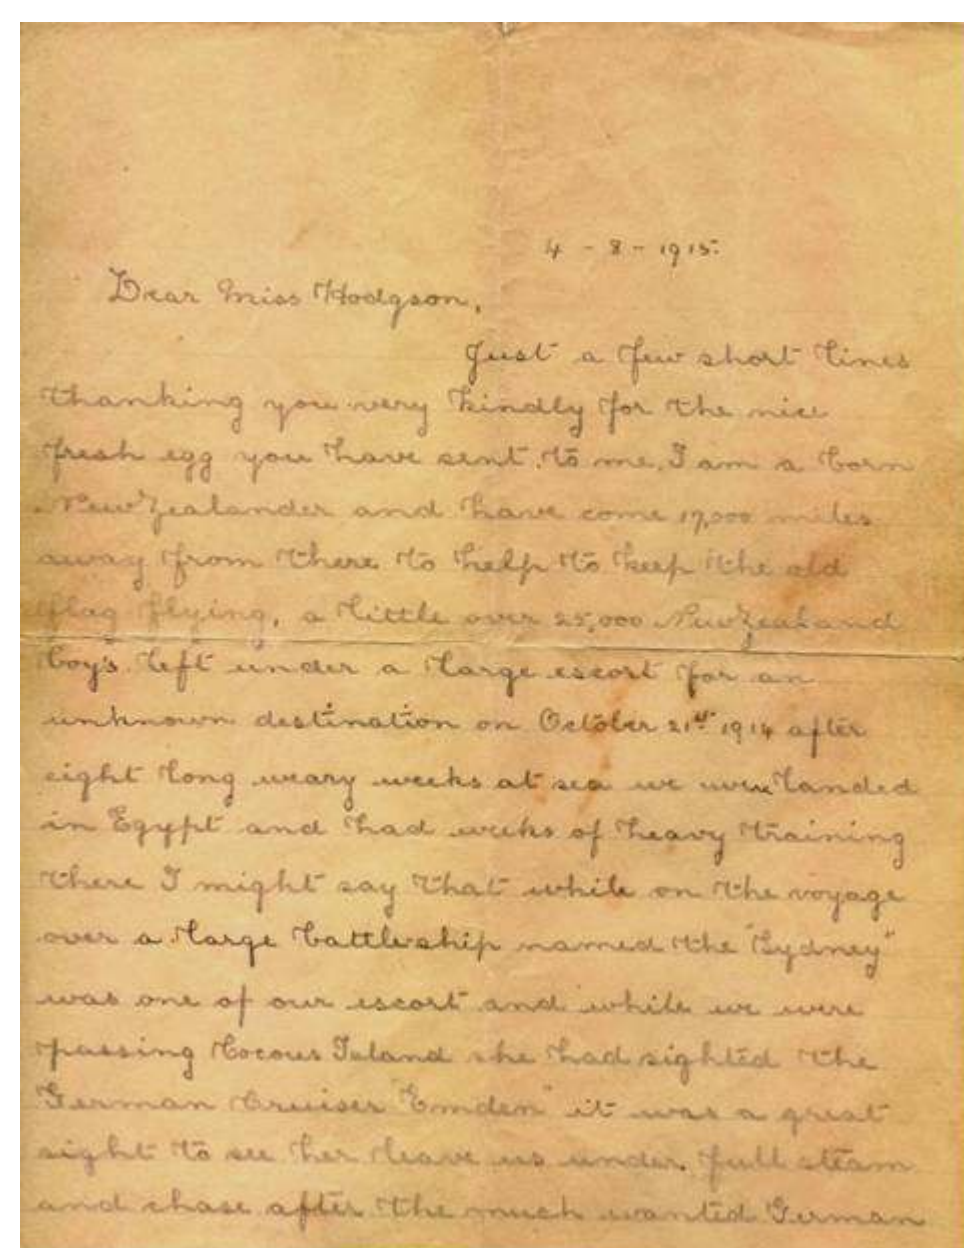 4 - 8 - 1915.
Dear Miss Hodgson,
Just a few short lines
thanking you very kindly for the nice
fresh egg you have sent to me, I am a born
New Zealander and have come 17,000 miles
away from there to help to keep the old
flag flying, a little over 25,000 New Zealand
boy's left under a large escort for an
unknown destination on October 21st 1914 after
eight long weary weeks at sea we were landed
in Egypt and had weeks of heavy training
there I might say that while on the voyage
over a large battleship named the "Sydney"
was one of our escort and while we were
passing Cocous Island she had sighted the
German Cruiser "Emden" it was a great
sight to see her leave us under full steam
and chase after the much wanted German